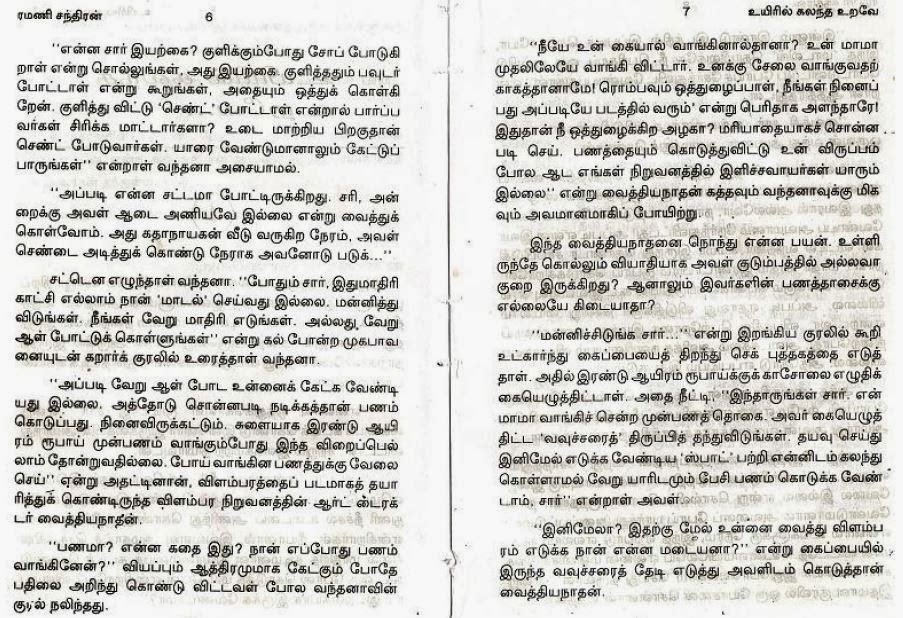 ரமணி சந்திரன் 6
"என்ன சார் இயற்கை? குளிக்கும்போது சோப் போடுகி
றாள் என்று சொல்லுங்கள், அது இயற்கை. குளித்ததும் பவுடர்
போட்டாள் என்று கூறுங்கள், அதையும் ஒத்துக் கொள்கி
றேன். குளித்து விட்டு 'செண்ட்' போட்டாள் என்றால் பார்ப்ப
வர்கள் சிரிக்க மாட்டார்களா? உடை மாற்றிய பிறகுதான்
செண்ட் போடுவார்கள். யாரை வேண்டுமானாலும் கேட்டுப்
பாருங்கள்" என்றாள் வந்தனா அசையாமல்.
"அப்படி என்ன சட்டமா போட்டிருக்கிறது. சரி, அன்
றைக்கு அவள் ஆடை அணியவே இல்லை என்று வைத்துக்
கொள்வோம். அது கதாநாயகன் வீடு வருகிற நேரம், அவள்
செண்டை அடித்துக் கொண்டு நேராக அவனோடு படுக்..."
சட்டென எழுந்தாள் வந்தனா. "போதும் சார், இதுமாதிரி
காட்சி எல்லாம் நான் 'மாடல்' செய்வது இல்லை. மன்னித்து
விடுங்கள். நீங்கள் வேறு மாதிரி எடுங்கள். அல்லது வேறு
ஆள் போட்டுக் கொள்ளுங்கள்" என்று கல் போன்ற முகபாவ
னையுடன் கறார்க் குரலில் உரைத்தாள் வந்தனா.
"அப்படி வேறு ஆள் போட உன்னைக் கேட்க வேண்டி
யது இல்லை. அத்தோடு சொன்னபடி நடிக்கத்தான் பணம்
கொடுப்பது. நினைவிருக்கட்டும். சுளையாக இரண்டு ஆயி
ரம் ரூபாய் முன்பணம் வாங்கும்போது இந்த விறைப்பெல்
லாம் தோன்றுவதில்லை. போய் வாங்கின பணத்துக்கு வேலை
செய்" என்று அதட்டினான், விளம்பரத்தைப் படமாகத் தயா
ரித்துக் கொண்டிருந்த விளம்பர நிறுவனத்தின் ஆர்ட் டைரக்
டர் வைத்தியநாதன்.
"பணமா? என்ன கதை இது? நான் எப்போது பணம்
வாங்கினேன்?" வியப்பும் ஆத்திரமுமாக கேட்கும் போதே
பதிலை அறிந்து கொண்டு விட்டவள் போல வந்தனாவின்
குரல் நலிந்தது.
7 உயிரில் கலந்த உறவே
"நீயே உன் கையால் வாங்கினால்தானா? உன் மாமா
முதலிலேயே வாங்கி விட்டார். உனக்கு சேலை வாங்குவதற்
காகத்தானாமே! ரொம்பவும் ஒத்துழைப்பாள், நீங்கள் நினைப்
பது அப்படியே படத்தில் வரும்' என்று பெரிதாக அளந்தாரே!
இதுதான் நீ ஒத்துழைக்கிற அழகா? மரியாதையாகச் சொன்ன
படி செய். பணத்தையும் கொடுத்துவிட்டு உன் விருப்பம்
போல ஆட எங்கள் நிறுவனத்தில் இளிச்சவாயர்கள் யாரும்
இல்லை" என்று வைத்தியநாதன் கத்தவும் வந்தனாவுக்கு மிக
வும் அவமானமாகிப் போயிற்று.
இந்த வைத்தியநாதனை நொந்து என்ன பயன். உள்ளி
ருந்தே கொல்லும் வியாதியாக அவள் குடும்பத்தில் அல்லவா
குறை இருக்கிறது? ஆனாலும் இவர்களின் பணத்தாசைக்கு
எல்லையே கிடையாதா?
"மன்னிச்சிடுங்க சார்..." என்று இறங்கிய குரலில் கூறி
உட்கார்ந்து கைப்பையைத் திறந்து செக் புத்தகத்தை எடுத்
தாள். அதில் இரண்டு ஆயிரம் ரூபாய்க்குக் காசோலை எழுதிக்
கையெழுத்திட்டாள். அதை நீட்டி, "இந்தாருங்கள் சார். என்
மாமா வாங்கிச் சென்ற முன்பணத் தொகை. அவர் கையெழுத்
திட்ட 'வவுச்சரைத்' திருப்பித் தந்துவிடுங்கள். தயவு செய்து
இனிமேல் எடுக்க வேண்டிய 'ஸ்பாட்' பற்றி என்னிடம் கலந்து
கொள்ளாமல் வேறு யாரிடமும் பேசி பணம் கொடுக்க வேண்
டாம், சார்" என்றாள் அவள்.
"இனிமேலா? இதற்கு மேல் உன்னை வைத்து விளம்ப
ரம் எடுக்க நான் என்ன மடையனா?" என்று கைப்பையில்
இருந்த வவுச்சரைத் தேடி எடுத்து அவளிடம் கொடுத்தான்
வைத்தியநாதன்.